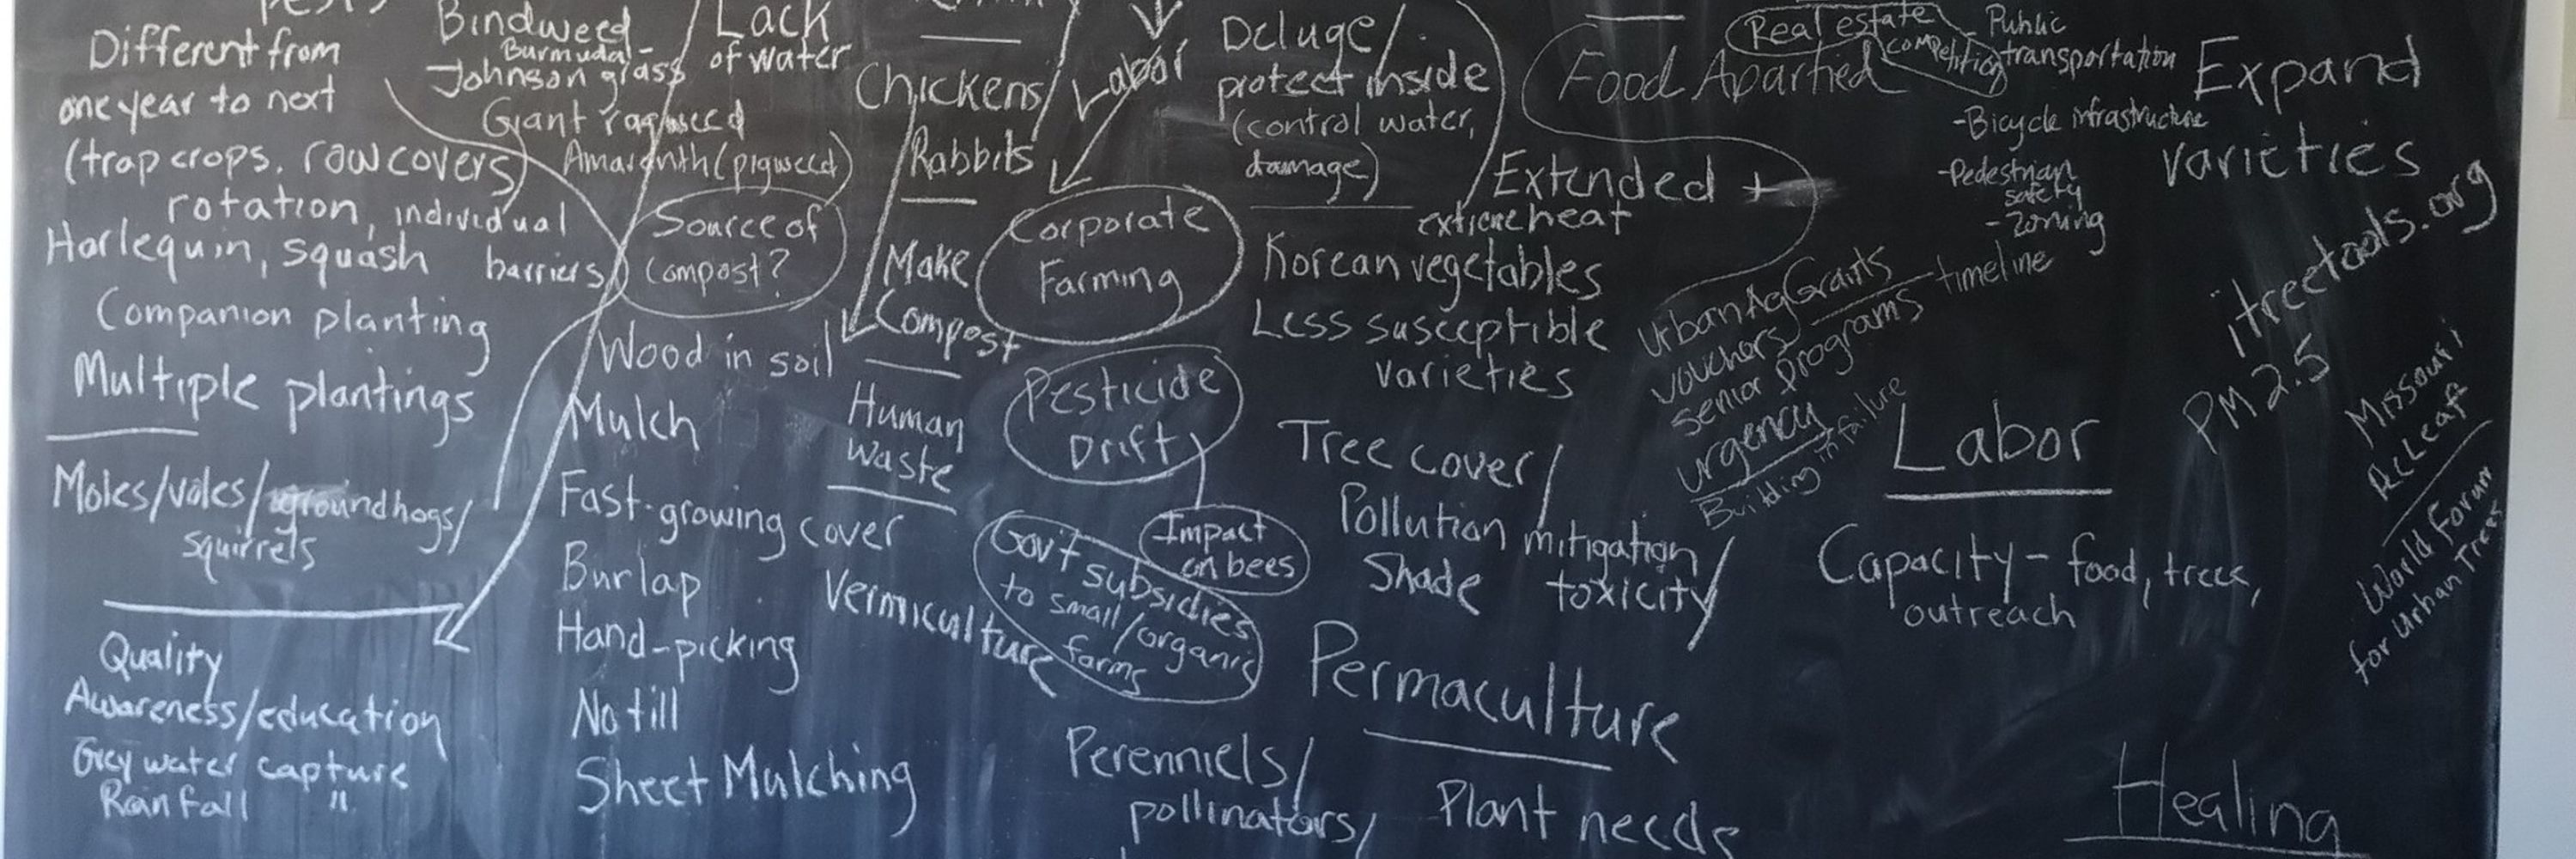 Pests
Different from
one year to next
(trap crops, row covers)
rotation, individual
barriers)
Harlequin, squash
Companion planting
Multiple plantings
Moles/voles/groundhogs/
squirrels
Quality
Awareness/education
Grey water capture
Rainfall "
Bindweed
Burmuda-
Johnson grass
Giant ragweed
Amaranth (pigweed)
Source of
compost?
Wood in soil
Mulch
Fast-growing cover
Burlap
Hand-picking
No till
Sheet Mulching
Lack
of water
Chickens/
Rabbits
Make
Compost
Human
Waste
Vermiculture
Labor
Corporate
Farming
Pesticide
Drift
Impact
on bees
Gov't subsidies
to small/organic
farms
Perenniels/
pollinators/
Deluge/
protect inside
(control water,
damage)
Extended +
extreme heat
Korean vegetables
Less susceptible
varieties
Tree cover/
Pollution mitigation/
Shade toxicity/
Permaculture
Plant needs
Food Apartied
Real estate
competition
Public
transportation
-Bicycle infrastructure
-Pedestrian
safety
-Zoning
Urban Ag Grants
vouchers timeline
senior programs
urgency
Building in failure
Labor
Capacity - food, trees,
outreach
Expand
varieties
itreetools.org
PM 2.5
Missouri
ReLeaf
World Forum
for Urban Trees
Healing